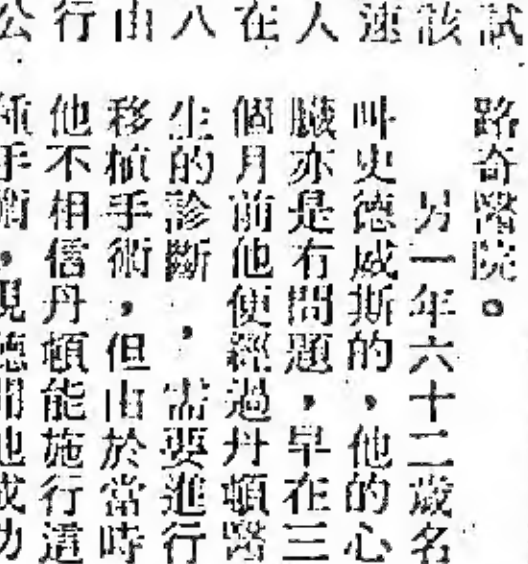 試
該
速
人
在
八
由
行
公
路奇醫院。
另一年六十二歲名
叫史德威斯的,他的心
臟亦是有問題,早在三
個月前他便經過丹頓醫
生的診斷,需要進行
移植手術,但由於當時
他不相信丹頓能施行這
種手術,現聽聞他成功